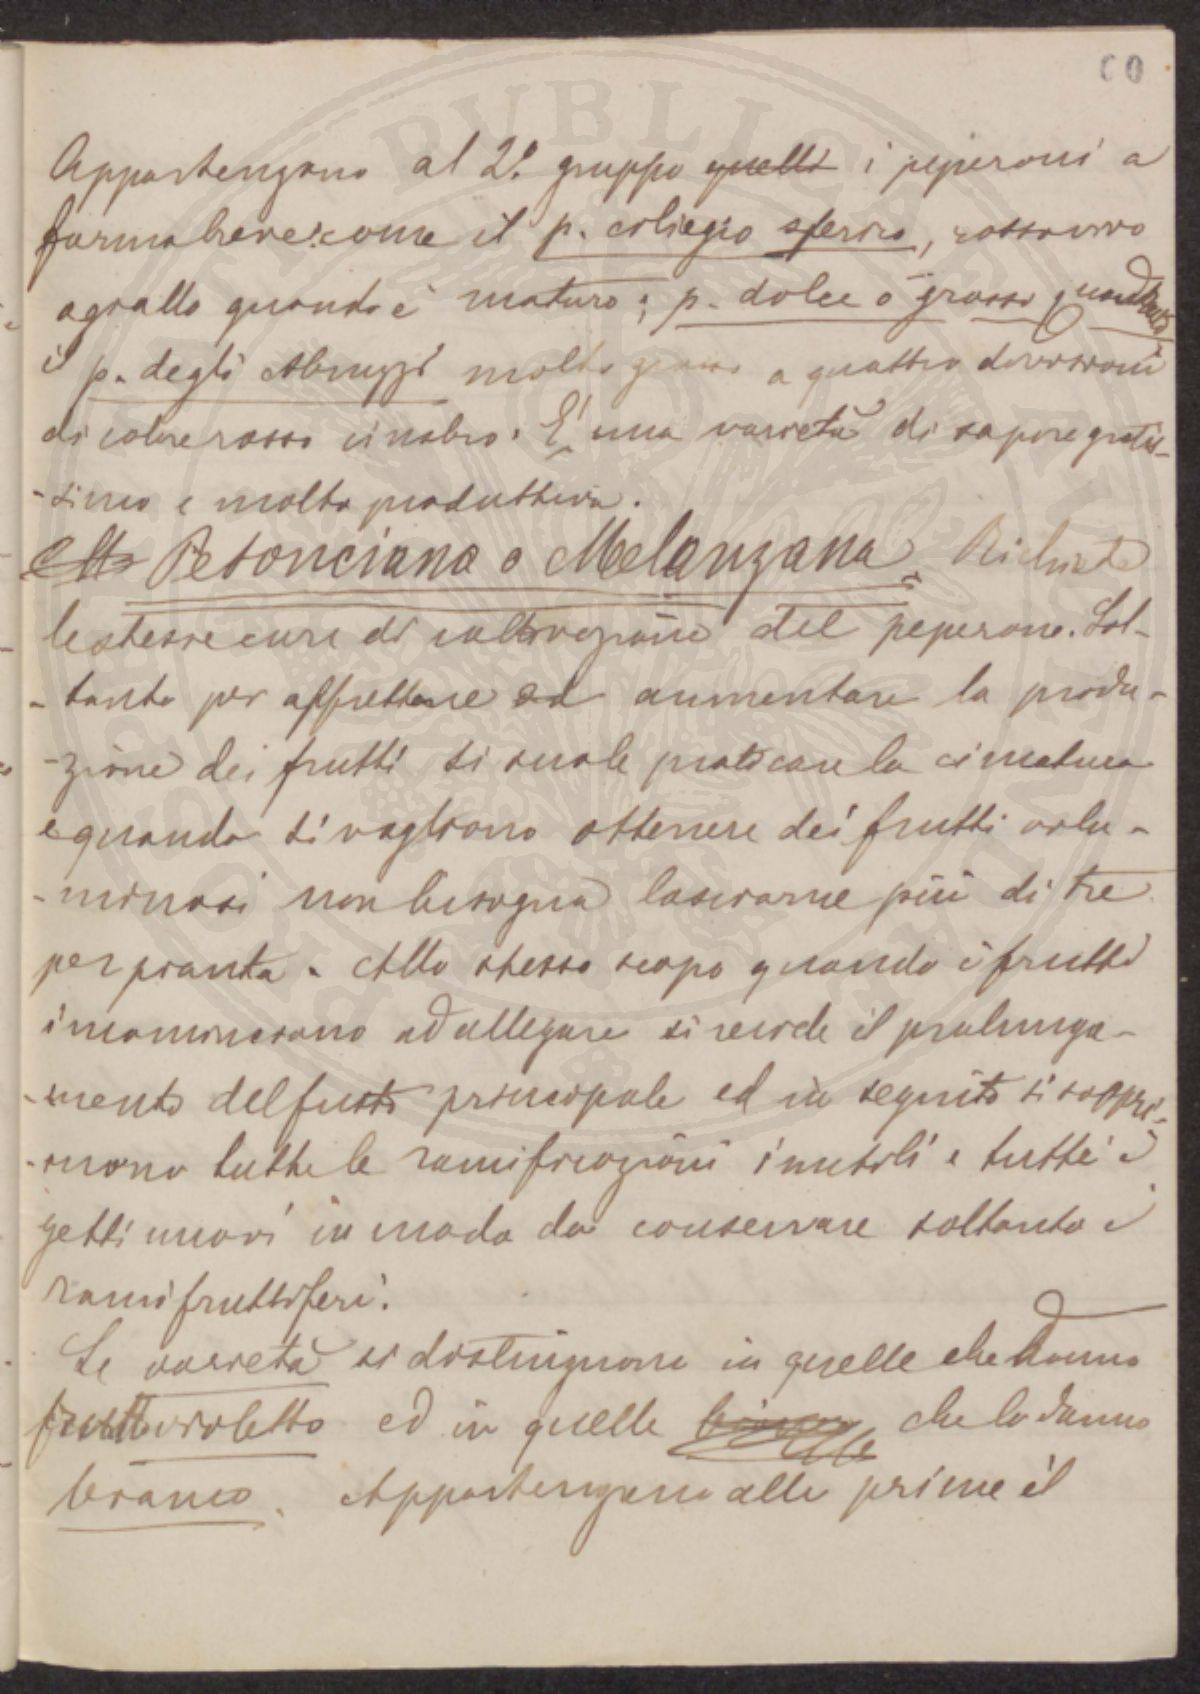 60
Appartengono al 2º. gruppo quelli i peperoni a
forma breve: come il p. ciliegio sferico, rosso vivo
o giallo quando è maturo; p. dolce o grosso quadrato
il p. degli Abruzzi molto grosso a quattro divisioni
di colore rosso cinabro. E' una varietà di sapore gratis-
-simo e molto produttiva.
Petonciana o Melanzana. Richiede
le stesse cure di coltivazione del peperone. Sol-
-tanto per affrettare ed aumentare la produ-
-zione dei frutti si suole praticare la cimatura
e quando si vogliono ottenere dei frutti volu-
-minosi non bisogna lasciarne più di tre
per pianta. Allo stesso scopo quando i frutti
incominciano ad allegare si recide il prolunga-
-mento del fusto principale ed in seguito si soppri-
-mono tutte le ramificazioni inutili e tutti i
getti nuovi in modo da conservare soltanto i
rami fruttiferi.
Le varietà si distinguono in quelle che danno
frutto violetto ed in quelle che lo danno
bianco. Appartengono alle prime il